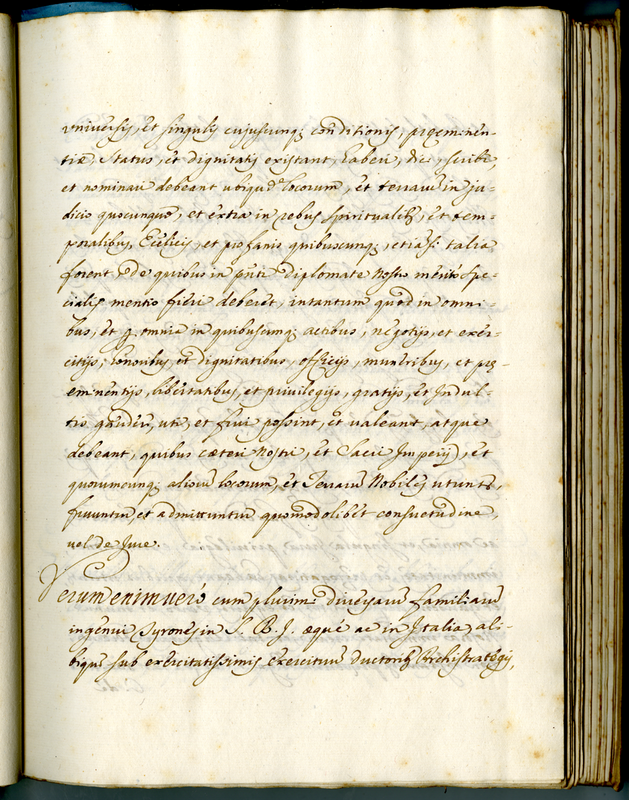 vniversis, et singulis cujuscunq; conditionis, præeminen-
tiæ, Status, et dignitatis existant, haberi, dici, scribi,
et nominari debeant ubiqué locorum, et terrarum in ju-
dicio quocunque, et extra in rebus spiritualib9, et tem-
poralibus, Ecclicis, et profanis quibuscunq;, etiãsi talia
forent de quibus in pñti diplomate nostro merito Spe-
cialis mentio fieri deberet, intantum quod in omni-
bus, et p omnia in quibuscunq; actibus, negotijs, et exer-
citijs, honoribus, et dignitatibus, officijs, muneribus, et præ-
eminentijs, libertatibus, et privilegijs, gratijs, et Indul-
tis gauderi, uti, et frui possint, et valeant, atque
debeant, quibus cæteri nostri, et Sacri Imperij, et
quorumcunq; aliorum locorum, et Terrarum Nobiles utunt,
fruuntur, et admittuntur quomodolibet consuetudine,
vel de Jure.
Verum enimvero cum plurimi diversarum familiarum
ingenui Tyrones in S. R. I. æque ac in Italia, ali-
bique sub exercitatissimis exercituum ductorib9 Archistrategis,